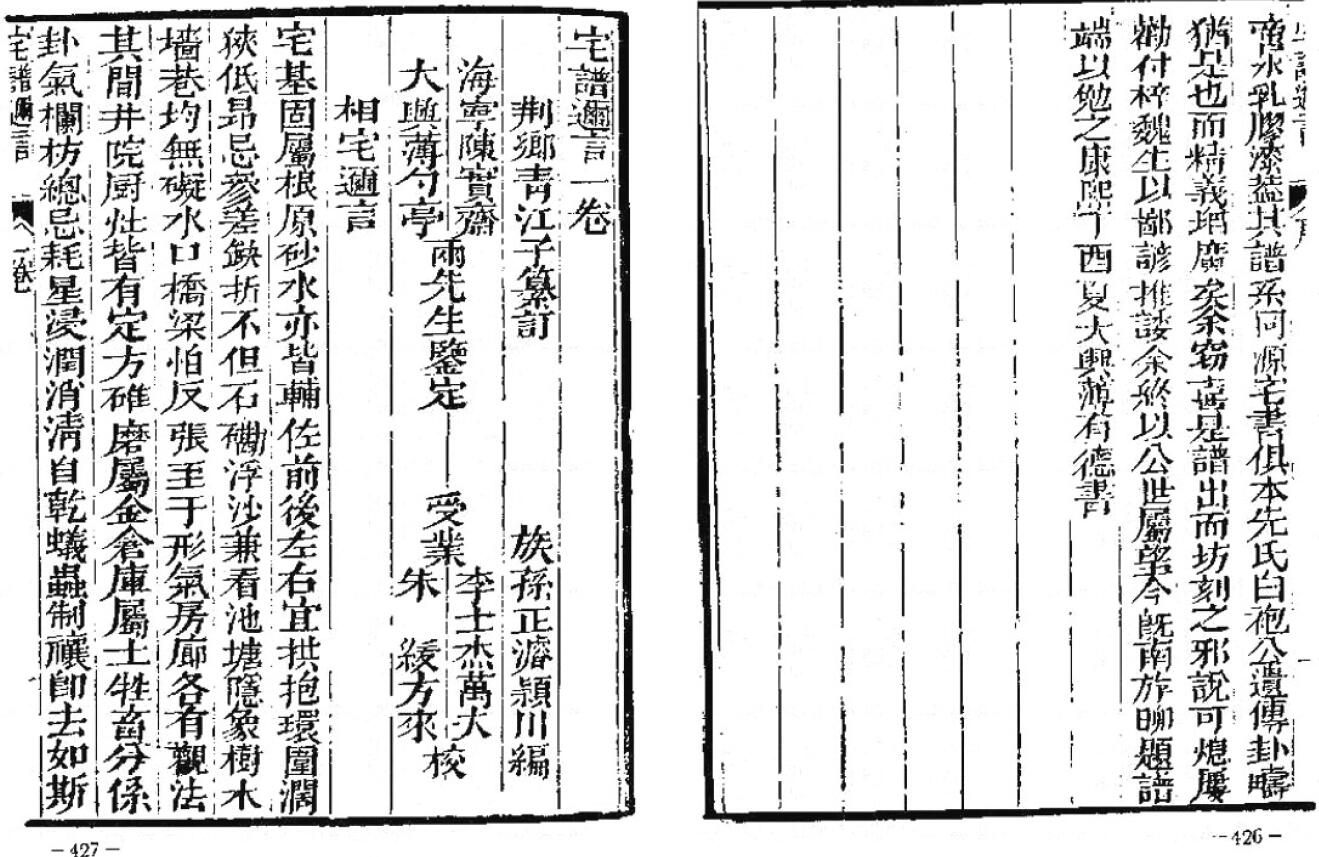 帝水乳膠漆蓋其譜系同源宅書俱本先氏白袍公遺傳卦疇
猶是也而精義瑣廣矣余窃喜是譜出而坊刻之邪說可熄屢
勸付梓魏生以鄙諺推諉余終以公世屬望今旣南旋聊題譜
端以勉之康熙丁酉夏大興薄有德書
—426—
宅譜邇言一卷
荆鄉青江子纂訂 族孫正濬潁川編
海寧陳實齋 李士杰萬大
大興薄勺亭 兩先生鑒定 受業 朱 綬方來 校
相宅邇言
宅基固屬根原砂水亦皆輔佐前後左右宜拱抱環圍濶
狹低昻忌參差缺折不但石磡浮沙兼看池塘隱象樹木
墻巷均無礙水口橋梁怕反張至于形氣房廊各有觀法
其間井院厨灶皆有定方碓磨屬金倉庫屬土牲畜分係
卦氣欄枋總忌耗星浸潤消淸自乾蟻蟲制禳卽去如斯
宅譜邇言 一卷
—427—